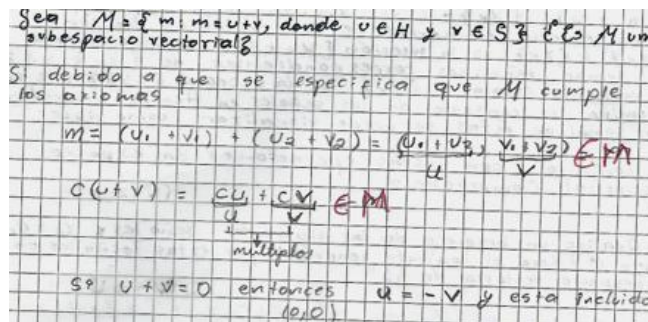 Sea M = { m : m = u + v, donde u ∈ H y v ∈ S } ¿Es M un
subespacio vectorial?
Si debido a que se especifica que M cumple
los axiomas
m = (u1 + v1) + (u2 + v2) = (u1 + u2, v1 + v2) ∈ M
u v
c(u + v) = cu + cv ∈ M
u v
múltiplos
Si u + v = 0 entonces u = -v y esta incluido
(0,0)